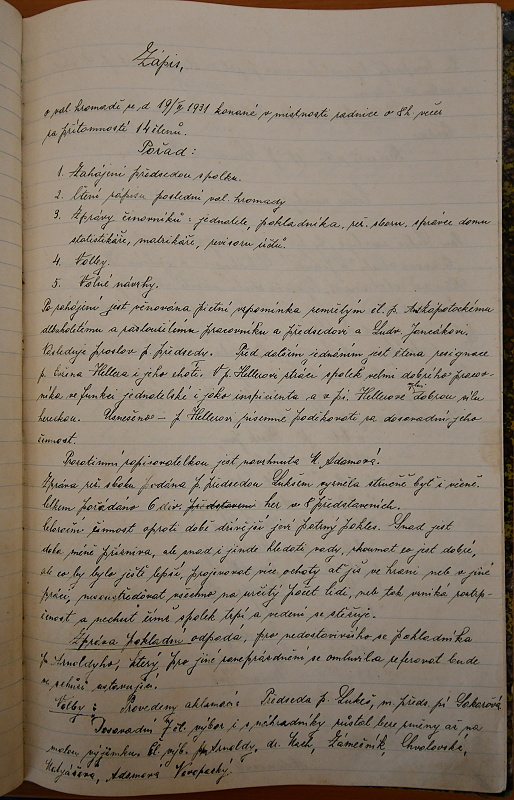 Zápis,
o val. hromadě ze d. 19/V 1931 konané v místnosti radnice o 8h. večer
za přítomnosti 14 členů.
Pořad:
1. Zahájení předsedou spolku.
2. Čtení zápisu poslední val. hromady
3. Zprávy činovníků: jednatele, pokladníka, rež. sboru, správce domu
statistikáře, matrikáře, revisorů účtů.
4. Volby.
5. Volné návrhy.
Po zahájení jest věnována pietní vzpomínka zemřelým čl. p.
dlouholetému a zasloužilému pracovníku a předsedovi a Ludv. Janečákovi.
Následuje proslov p. předsedy. Před dalším jednáním jest čtena resignace
p. Evžena Hellera i jeho choti. V p. Hellerovi ztrácí spolek velmi dobrého pracov-
níka ve funkci jednatelské i jako inspicienta a v pí. Hellerové velmi dobrou sílu
hereckou. Usneseno - p. Hellerovi písemně poděkovati za dosavadní jeho
činnost.
Prozatímní zapisovatelkou jest navrhnuta M. Adamová.
Zpráva rež. sboru podána p. předsedou Lukšem vyzněla stručně byť i věcně.
Celkem pořádáno 6 div. představení her v 8 představeních.
Celoroční činnost oproti době dřívější jeví patrný pokles. Snad jest
doba méně příznivá, ale snad i jinde hledati vady, zkoumat co jest dobré,
ale co by bylo ještě lepší, projevovat více ochoty ať již ve hraní neb v jiné
práci, nesoustřeďovat všechno na určitý počet lidí, neb tak vzniká roztrp-
čenost a nechuť čímž spolek trpí a vedení se stěžuje.
Zpráva pokladní odpadá, pro nedostavivšího se pokladníka
p. Arnoldyho, který pro jiné zaneprázdnění se omluvil a referovat bude
ve schůzi ustavující.
Volby: Provedeny aklamací: Předseda p. Lukeš, m. předs. pí Sokorová
Dosavadní 7 čl. výbor i s náhradníky zůstal beze změny až na
malou výjimku. Čl. výb. p. Arnoldy, dr. Mach, Zámečník, Chvalovská,
Matjášová, Adamová